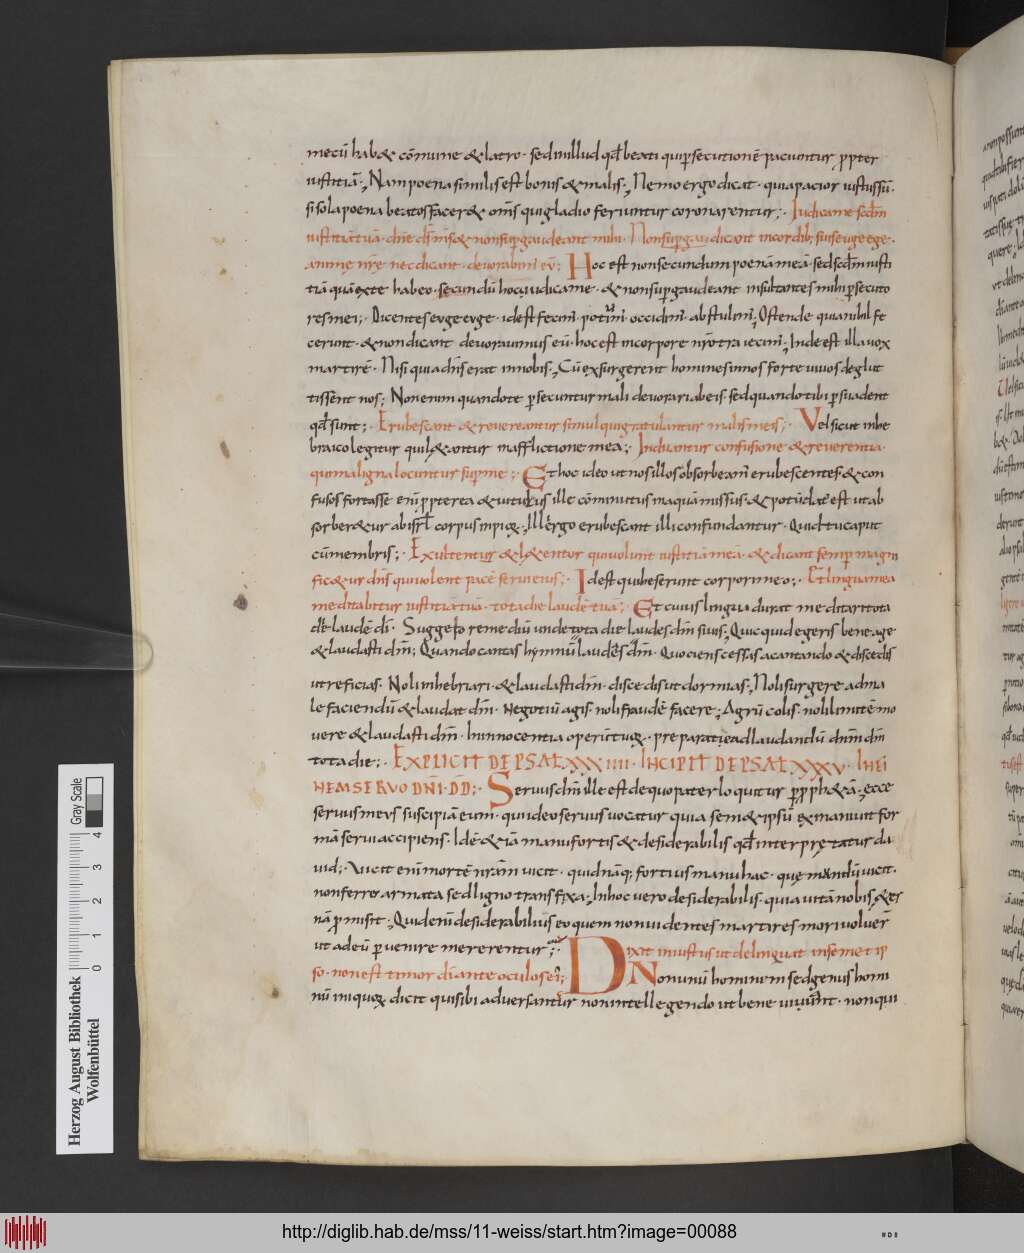 mecū hab& cōmune & latro · sed in illud qđ beati qui ꝑsecutionē paciuntur ꝓpter
iustitiā · Nam poena similis est bonis & malis · Nemo ergo dicat · quia pacior iustus sū ·
si sola poena beatos facer& om̄s qui gladio feriuntur coronarentur ; Iudica me scdm̄
iustitiā tuā · dn̄e ds̄ ms̄ & non suꝑgaudeant mihi · Non dicant in cordib; suis euge euge ·
anime nr̄e nec dicant · deuorabim eū ; Hoc est non secundum poenā meā · sed scdm̄ iusti
tiā quā ex te habeo · secundū hoc iudica me · & non suꝑgaudeant insultantes mihi ꝑsecuto
res mei ; Dicentes euge euge · id est fecim̄ potuim̄ · occidim̄ · abstulim̄ ; Ostende quia nihil fe
cerunt · & non dicant deuorauimus eū · hoc est in corpore nr̄o traiecim̄ ; Inde est illa uox
martirē · Nisi quia dn̄s erat in nobis ; Cū exsurgerent homines in nos forte uiuos deglut
tissent nos ; Non enim quando te ꝑsecuntur mali deuorari ab eis · sed quando tibi ꝑsuadent
qđ sunt ; Erubescant & reuereantur simul qui gratulantur malis meis ; Vel sicut in he
braico legitur qui l&antur in afflictione mea ; Induantur confusione & reuerentia ·
qui maligna locuntur suꝑ me ; Et hoc ideo ut nos illos obsorbeam̄ erubescentes & con
fusos fortasse enī ꝓpterea & uitulus ille cōminutus in aquā missus · & potū dat est ut ab
sorber&ur ab isrl̄ corpus impioꝝ ; Illi ergo erubescant illi confundantur · Quid tu caput
cū membris ; Exultentur & l&entur qui uolunt iustitiā meā · & dicant semp magni
fic&ur dn̄s qui uolent pacē serui eius ; Id est qui heserunt corpori meo ; Et lingua mea
meditabitur iustitiā tuā · tota die laudē tuā ; Et cuius lingua durat meditari tota
die laudē dī · Suggero remediū unde tota die laudes dm̄ si uis ; Quicquid egeris bene age
& laudasti dm̄ ; Quando cantas hymnū laudes dm̄ · Quociens cessas a cantando & discedis
ut reficias · Noli inhebriari · & laudasti dm̄ · discedis ut dormias ; Noli surgere ad ma
le faciendū & laudat dm̄ · Negotiū agis · noli fraudē facere ; Agrū colis · noli limitē mo
uere & laudasti dm̄ · In innocentia operū tuoꝝ · prepara te ad laudandū dn̄m dm̄
tota die ; EXPLICIT DE PSAL XXXIIII · INCIPIT DE PSAL XXXV · IN FI
NEM SERVO DN̄I · DD̄ ; Seruus dn̄i ille est de quo pater loquitur ꝑ ꝓph&ā · ecce
seruus meus suscipiā eum · qui ideo seruus uocatur quia sem&ipsū exinaniuit for
mā serui accipiens · Idē & iā manu fortis & desiderabilis qđ interpr&atur da
uid ; Vicit enī mortē nr̄am uicit · quid nāq; fortius manu hac · quę mundū uicit ·
non ferro armata sed ligno transfixa ; In hoc uero desiderabilis · quia uitā nobis &er
nā ꝓmisit · Quid enī desiderabilius eo quem non uidentes martires mori uoluer̄
ut ad eū ꝑuenire mererentur ; Dixit iniustus ut delinquat in semet ip
so · non est timor dī ante oculos ei ; Non unū hominem sed genus homi
nū iniquoꝝ dicit qui sibi aduersantur non intellegendo ut bene uiuant · non qui
Herzog August Bibliothek
Wolfenbüttel
0 1 2 3 4
Gray Scale
http://diglib.hab.de/mss/11-weiss/start.htm?image=00088